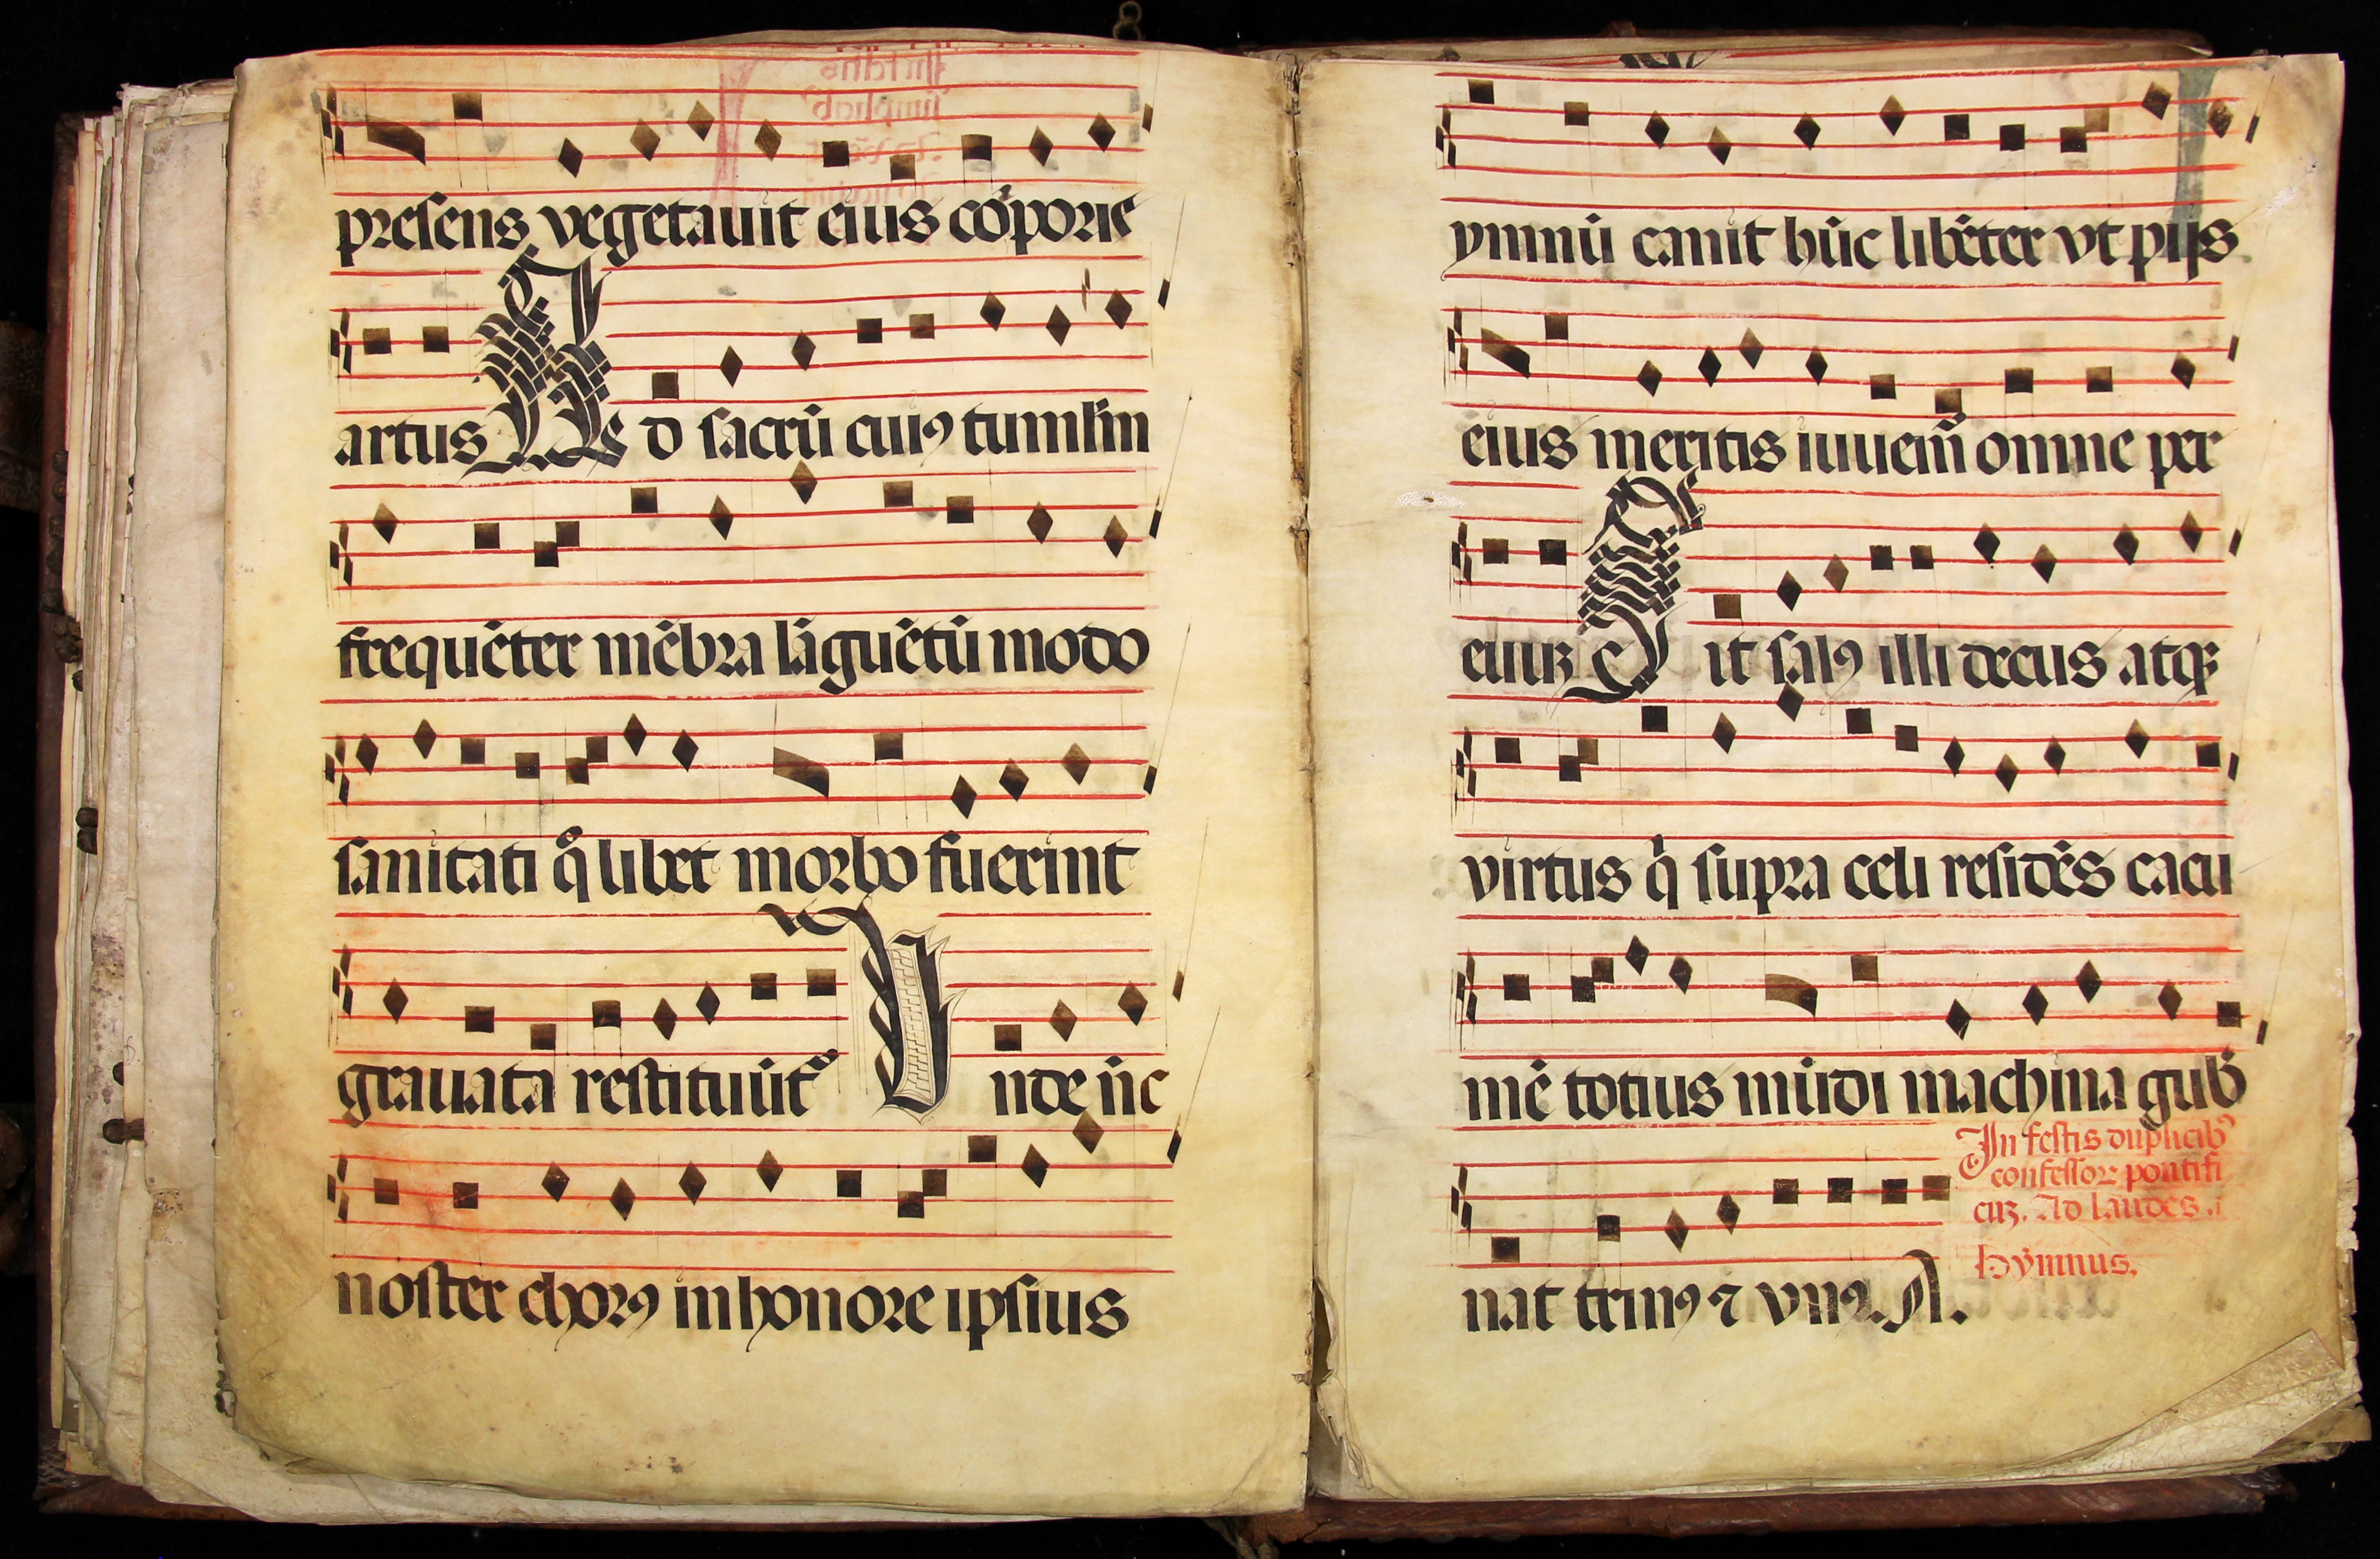 presens vegetauit eius cõporis
artus A d sacrũ cuiꝯ tumlũm
frequẽter mẽbra lãguẽtũ modo
sanitati q̃ libet morbo fuerint
grauata restituũtᷣ V nde ñc
noster chorꝯ in honore ipsius
ymnũ canit hũc libẽter vt pijs
eius meritis iuuem̃ omne per
euuꝫ S it salꝯ illi decus atqꝫ
virtus q̃ supra celi residẽs cacu
mẽ totius mũdi machina gub̃
In festis duplicibꝯ
confessorꝫ pontifi
cuꝫ. Ad laudes.
Hymnus.
nat trinꝯ ⁊ vnꝯ. A.